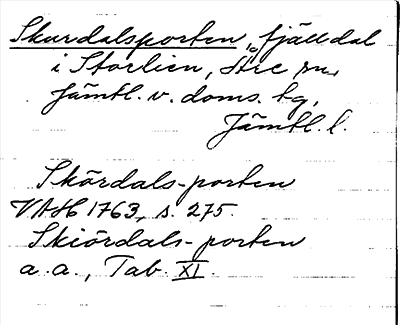 Skurdalsporten, fjälldal
i Storlien, Åre sn,
Jämtl. v. doms. tg,
Jämtl. l.
Skördals-porten
VAH 1763, s. 275.
Skiördals-porten
a. a., Tab. XI.